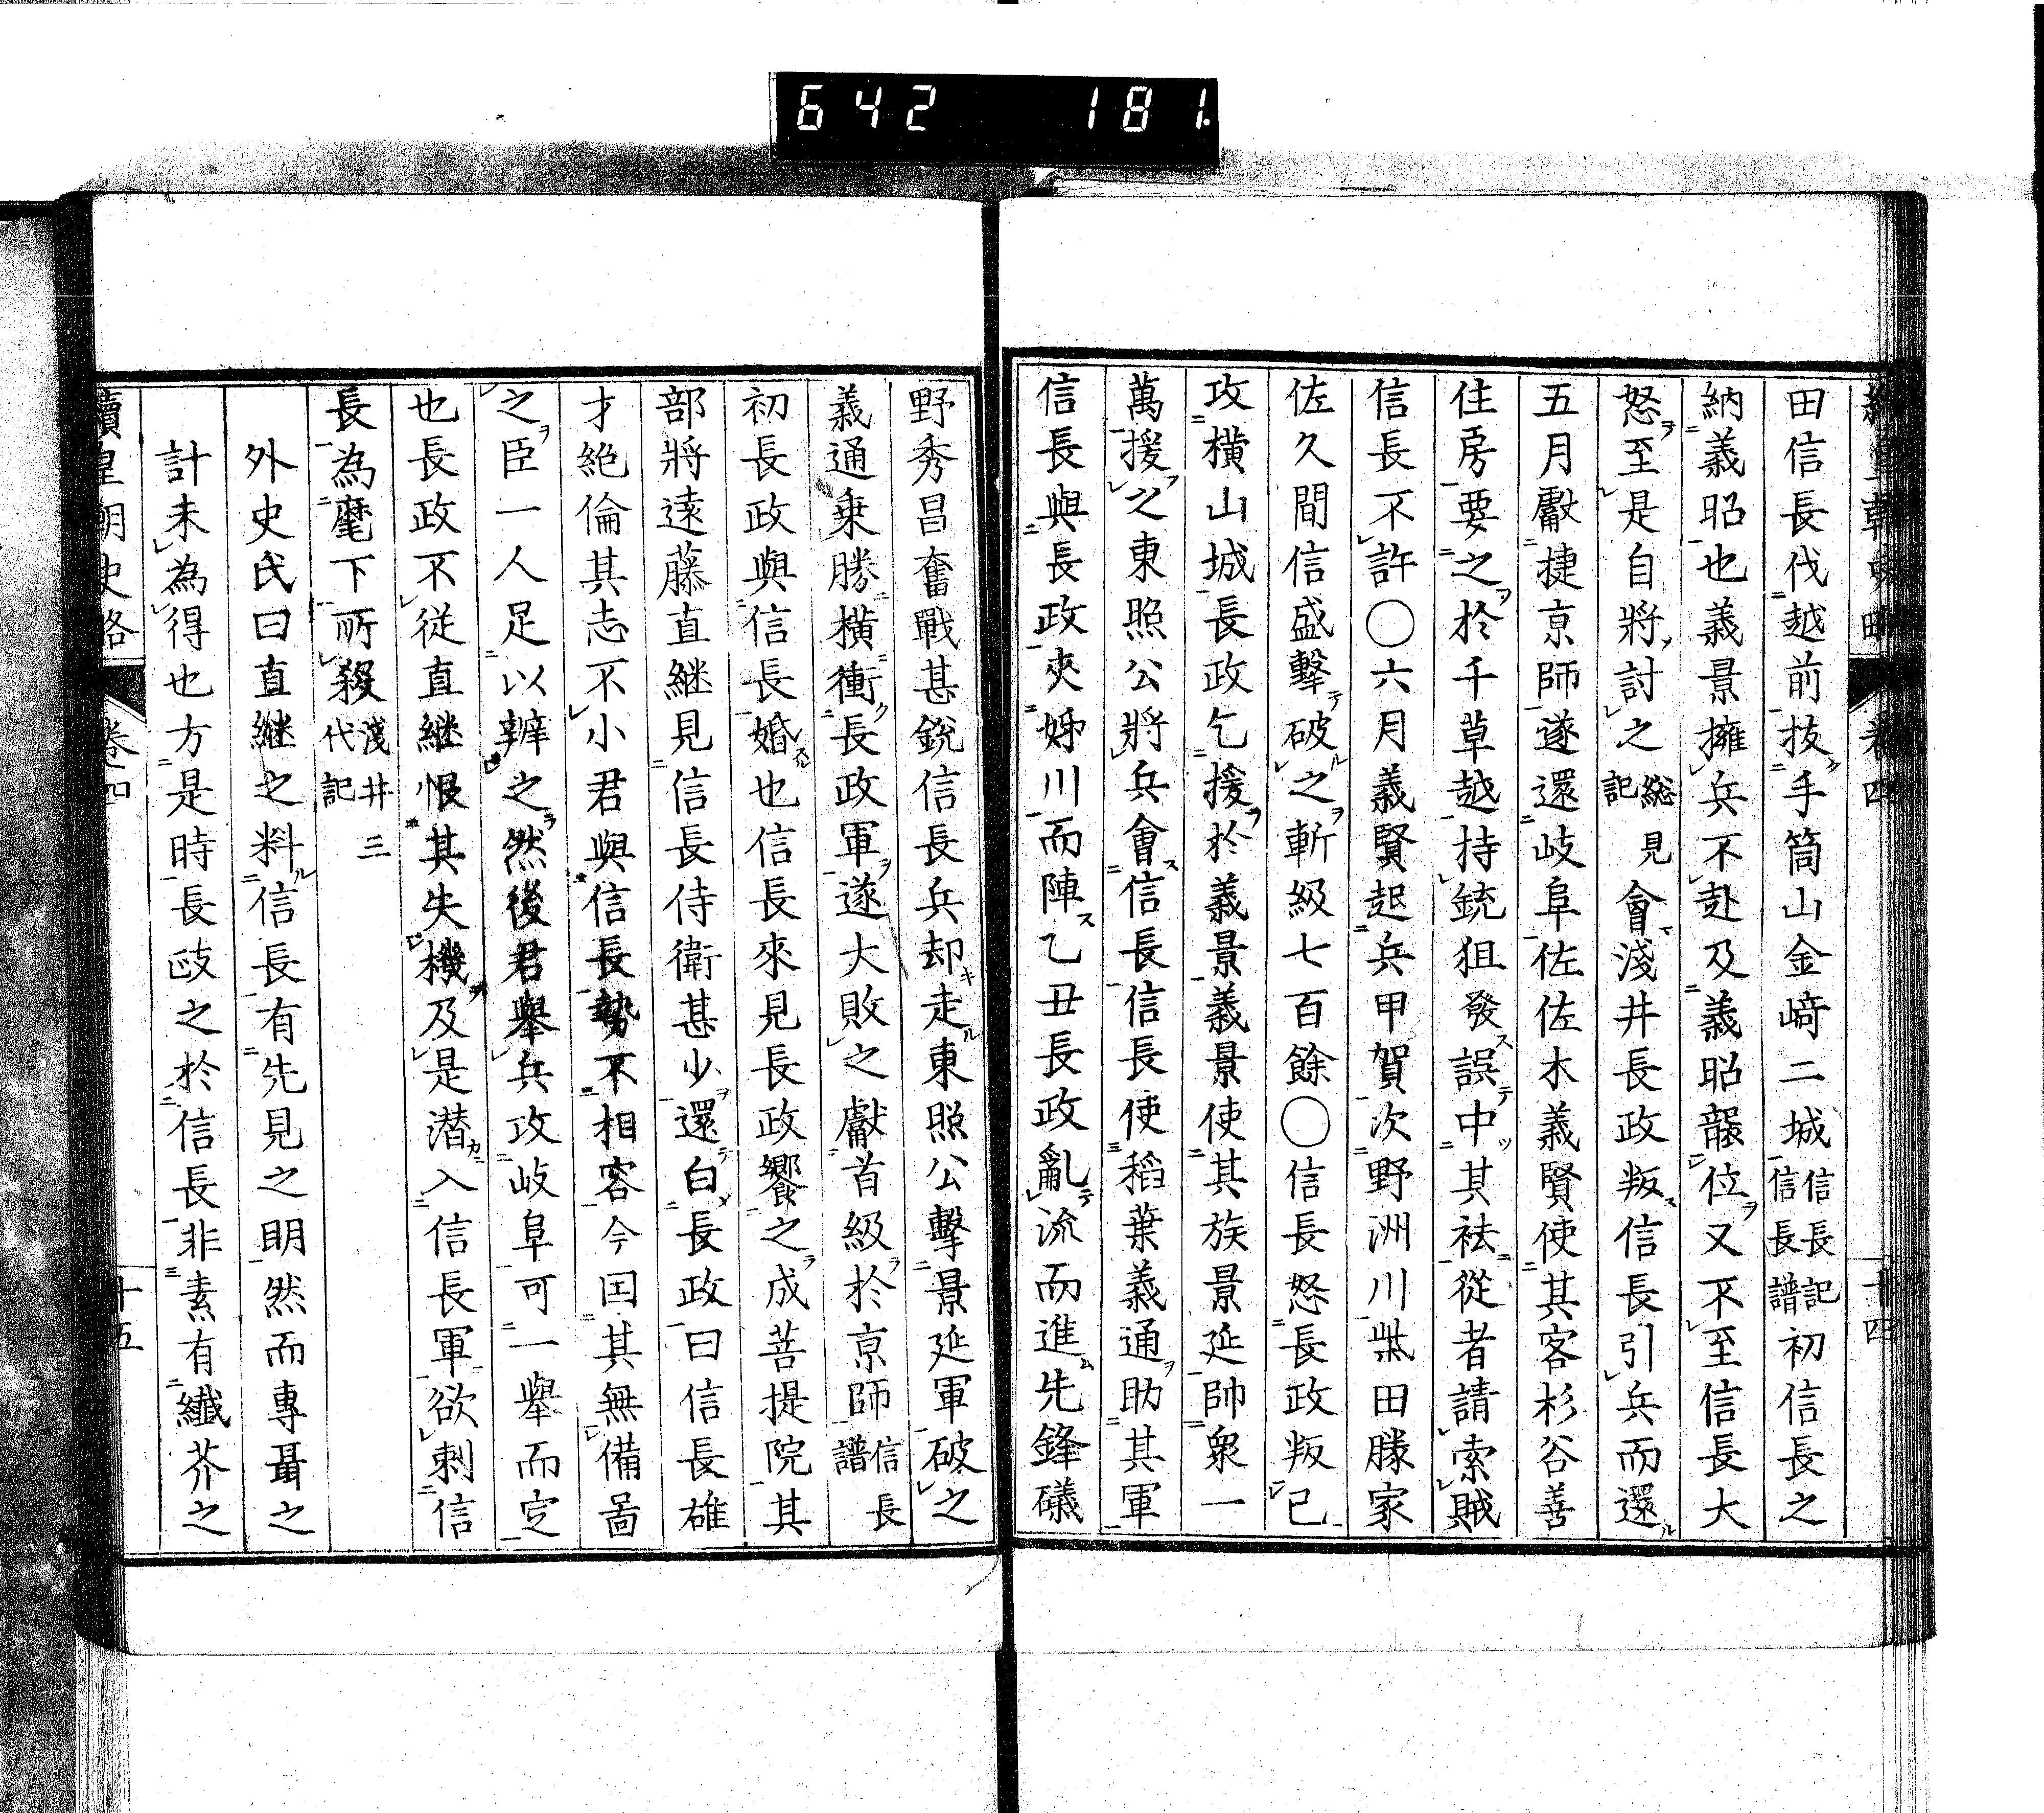 642 181.
田信長伐越前技手筒山金﨑二城信長記信長譜初信長之
納義昭也義景擁兵不赴及義昭襲位又不至信長大
怒至是自將討之総見記會淺井長政叛信長引兵而還
五月獻捷京師遂還岐阜佐佐木義賢使其客杉谷善
住房要之於千草越持銃狙發誤中其袪從者請索賊
信長不許〇六月義賢起兵甲賀次野洲川柴田勝家
佐久間信盛擊破之斬級七百餘〇信長怒長政叛己
攻橫山城長政乞援於義景義景使其族景延帥衆一
萬援之東照公將兵會信長信長使稻葉義通助其軍
信長與長政夾姊川而陣乙丑長政亂流而進先鋒礒
野秀昌奮戰甚銳信長兵却走東照公擊景延軍破之
義通乗勝橫衝長政軍遂大敗之獻首級於京師信長譜
初長政與信長婚也信長來見長政饗之成菩提院其
部將遠藤直継見信長侍衛甚少還白長政曰信長雄
才絶倫其志不小君與信長勢不相容今因其無備啚
之臣一人足以辦之然後君舉兵攻岐阜可一舉而定
也長政不從直継恨其失機及是潜入信長軍欲刺信
長為麾下所殺淺井三代記
外史氏曰直継之料信長有先見之明然而專聶之
計未為得也方是時長政之於信長非素有纖芥之
續皇朝史略 卷四 十五